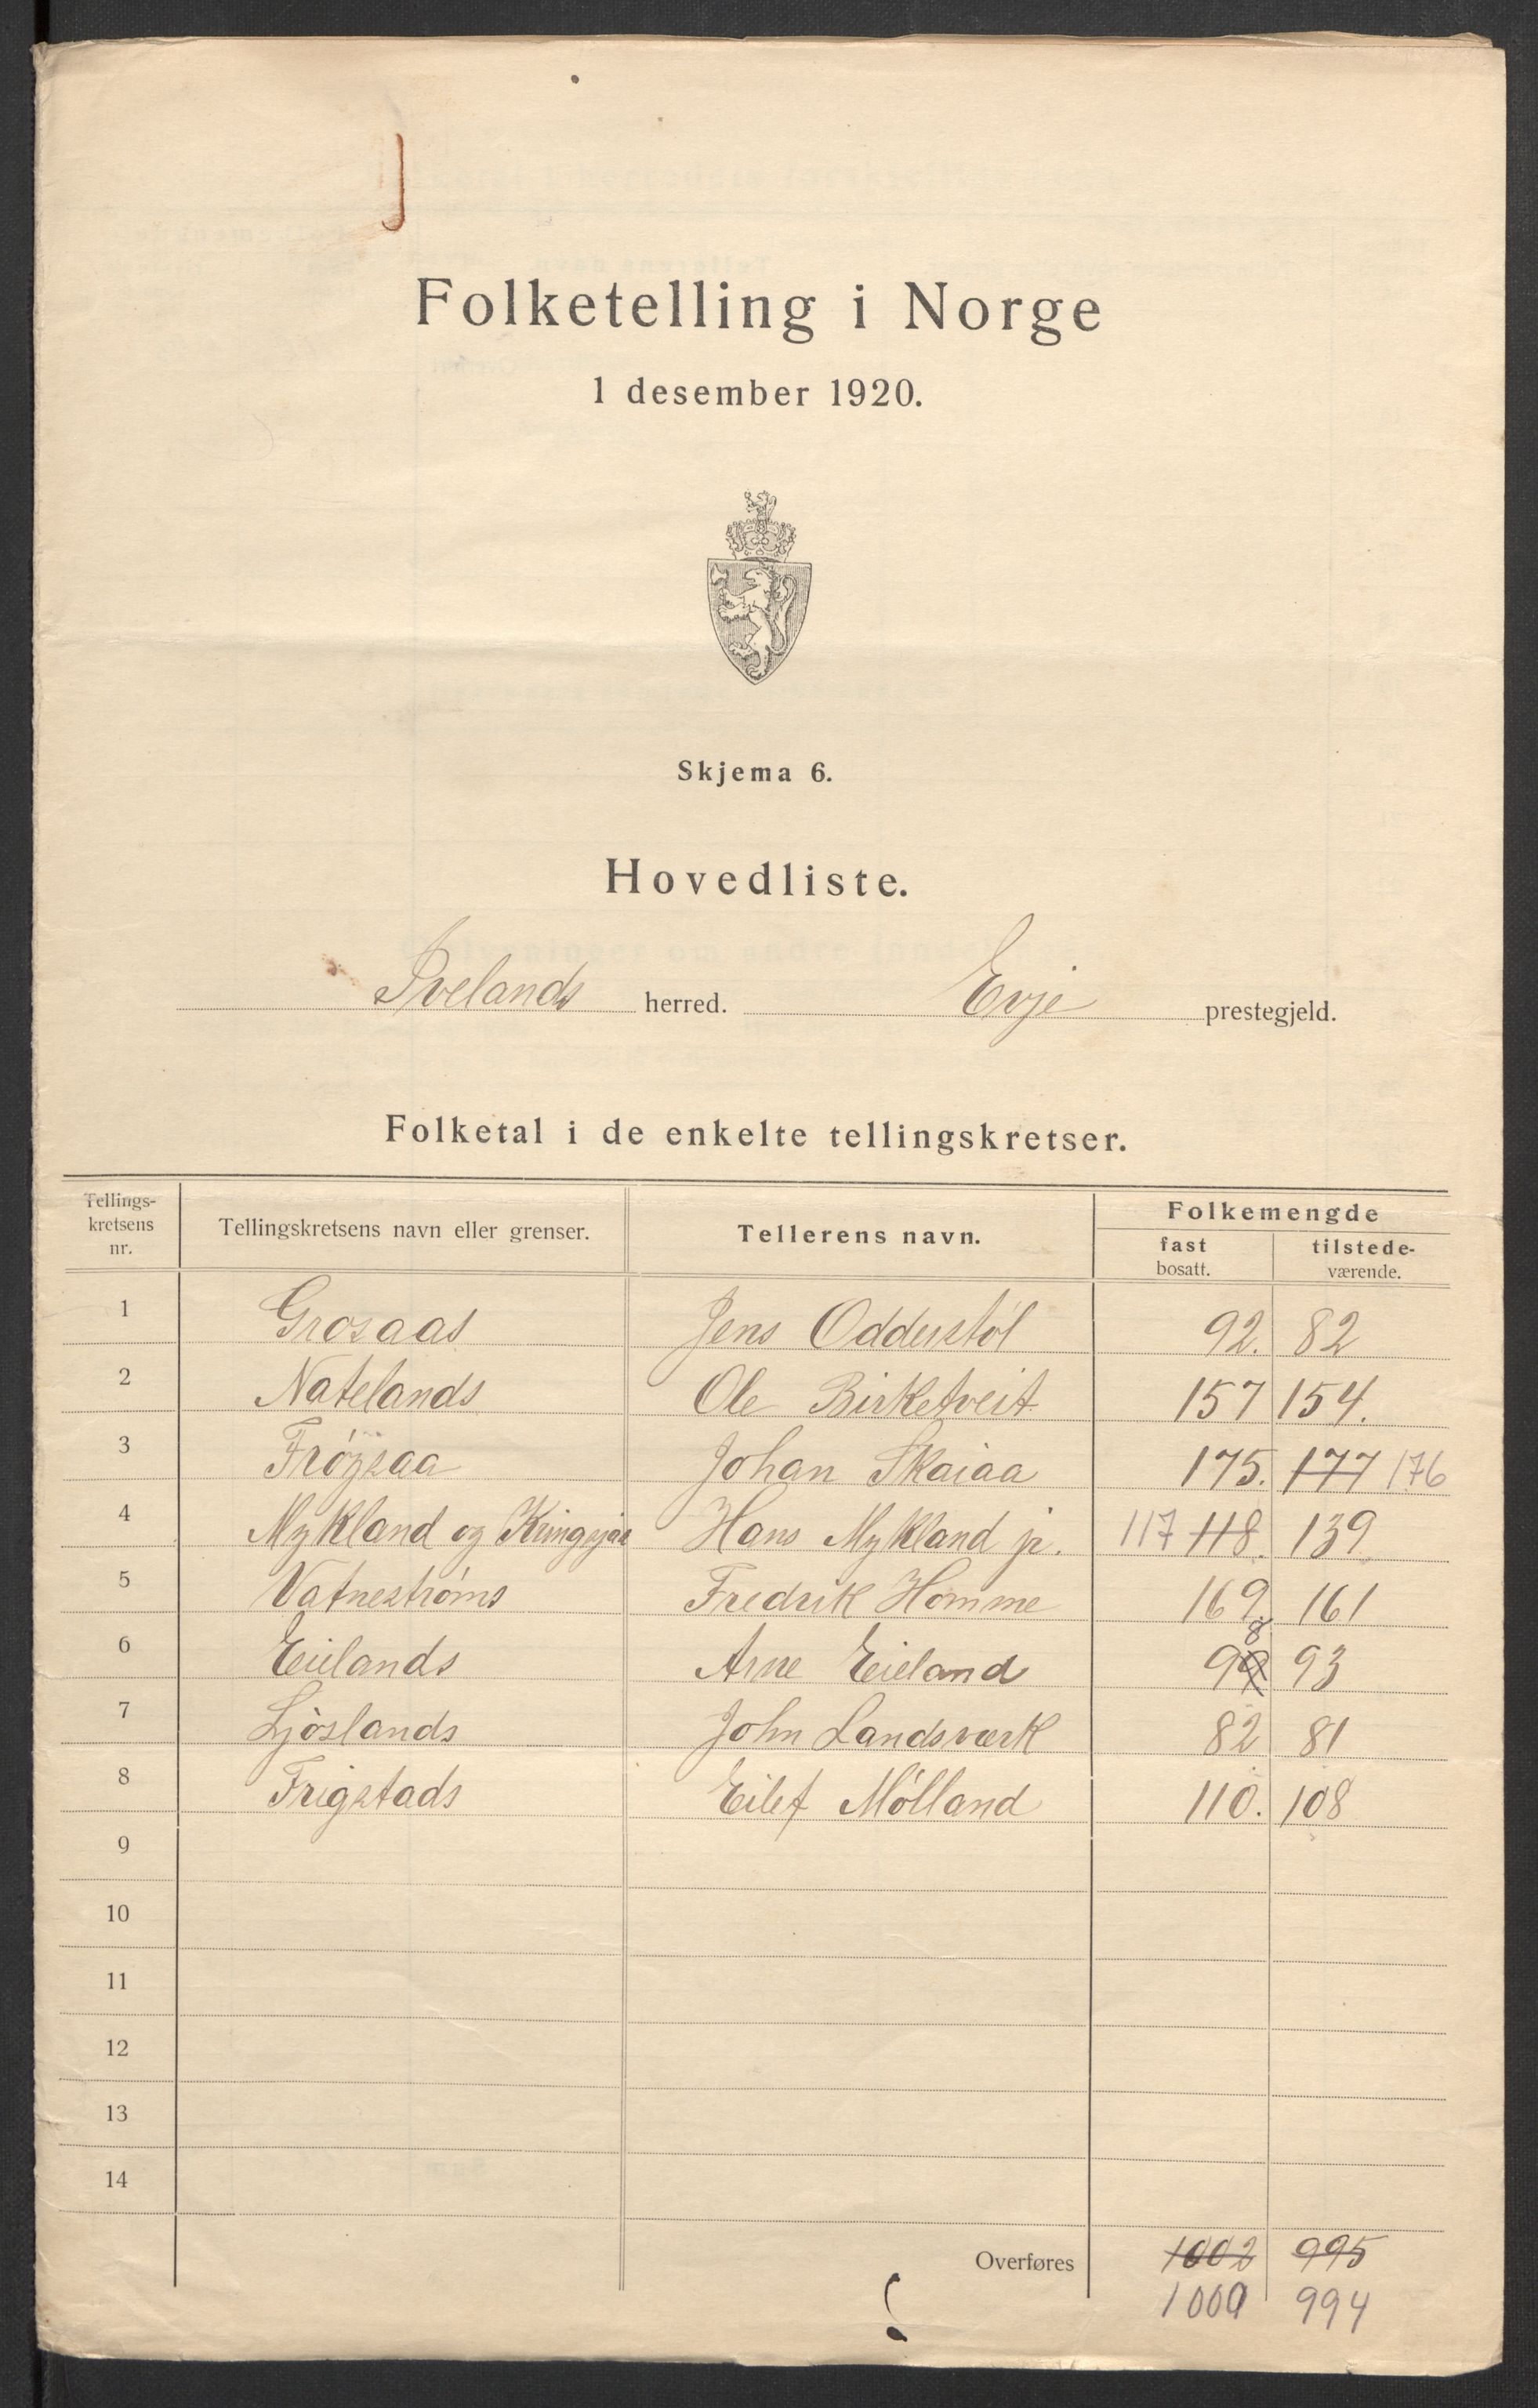 Folketelling i Norge
1 desember 1920.
Skjema 6.
Hovedliste.
Ivelands herred. Evje prestegjeld.
Folketal i de enkelte tellingskretser.
Tellings-kretsens nr. Tellingskretsens navn eller grenser. Tellerens navn. Folkemengde fast bosatt. tilstede-værende.
1 Grosaas Jens Odderstøl 92. 82
2 Natelands Ole Birketveit 157 154.
3 Frøysaa Johan Skaiaa 175. 177 176
4 Mykland og Kringsjaa Hans Mykland jr. 117 118. 139
5 Vatnestrøms Fredrik Homme 169. 161
6 Eielands Arne Eieland 99 8 93
7 Ljøslands John Landsværk 82 81
8 Frigstads Eilef Mølland 110. 108
9
10
11
12
13
14
Overføres 1002 995
1000 994